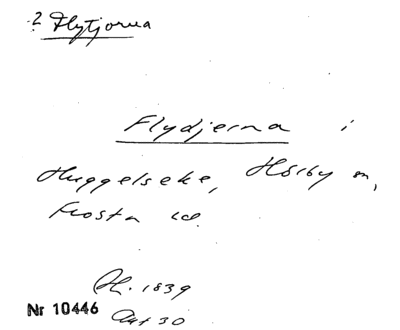 ? Flytjorna
Flydjerna i
Huggelseke, Hörby sn,
Frosta hd.
H. 1839
Akt 30
Nr 10446